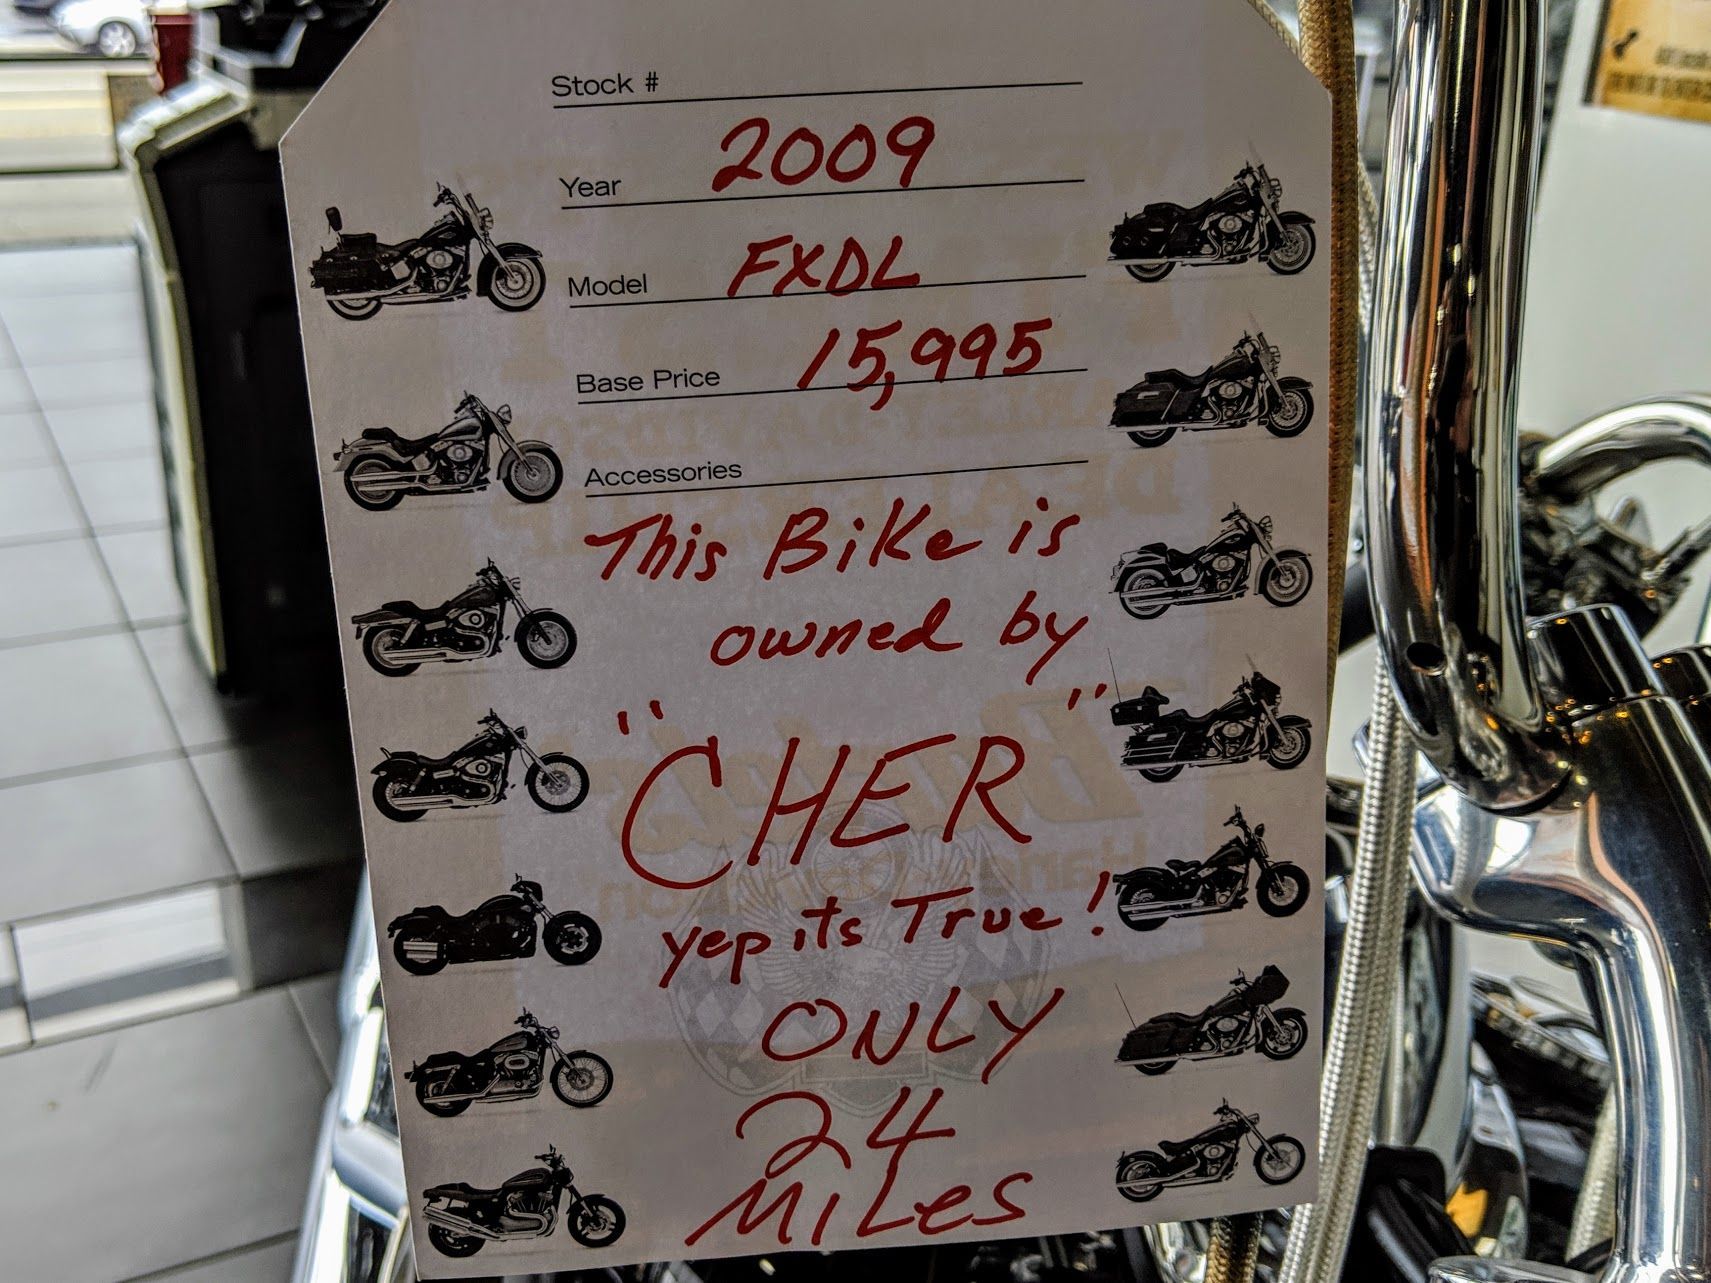 Stock #
Year 2009
Model FXDL
Base Price 15,995
Accessories
This Bike is
owned by
"CHER"
yep its True!
ONLY
24
MiLes